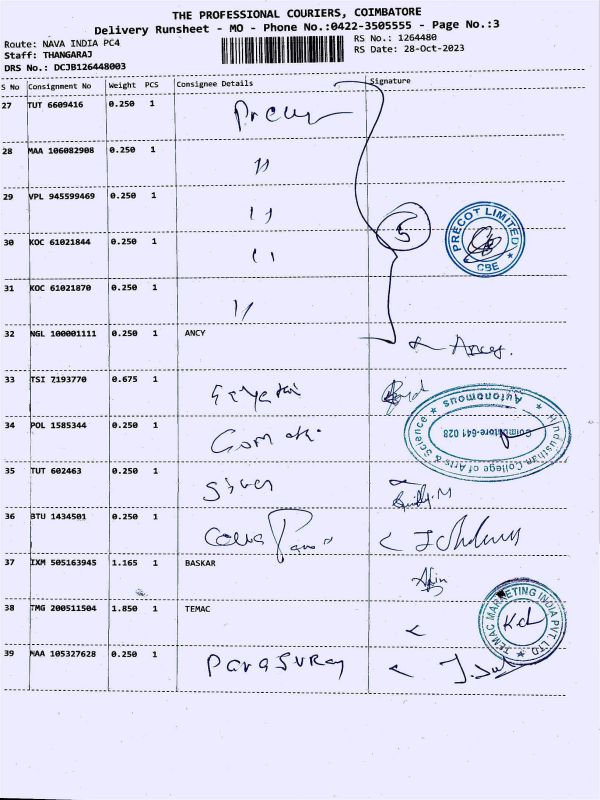 THE PROFESSIONAL COURIERS, COIMBATORE
Delivery Runsheet - MO - Phone No.:0422-3505555 - Page No.:3
Route: NAVA INDIA PC4 RS No.: 1264480
Staff: THANGARAJ RS Date: 28-Oct-2023
DRS No.: DCJB126448003
S No Consignment No Weight PCS Consignee Details Signature
27 TUT 6609416 0.250 1
28 MAA 106082908 0.250 1 "
29 VPL 945599469 0.250 1 "
5
PRECOT LIMITED ★ CBE ★
30 KOC 61021844 0.250 1 "
31 KOC 61021870 0.250 1 "
32 NGL 100001111 0.250 1 ANCY Ancy.
33 TSI 7193770 0.675 1
Hindusthan College of Arts & Science ★ Autonomous ★
Coimbatore-641 028
34 POL 1585344 0.250 1
35 TUT 602463 0.250 1
36 BTU 1434501 0.250 1
37 IXM 505163945 1.165 1 BASKAR
38 TMG 200511504 1.850 1 TEMAC
TEMAC MARKETING INDIA PVT. LTD ★
39 MAA 105327628 0.250 1 Parasuray